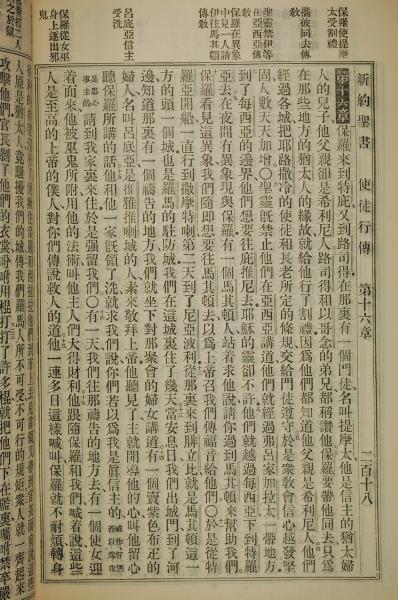 新約聖書 使徒行傳 第十六章 二百十八
保羅使提摩
太受割禮
攜彼同去傳
敎
聖靈禁伊等
在亞西亞傳
保羅在異象
中見人請
伊往馬其頓
傳敎
呂底亞信主
受洗
保羅從女巫
身上逐出邪
鬼
第十六章 保羅來到特庇又到路司得在那裏有一個門徒名叫提摩太他是信主的猶太婦
人的兒子他父親卻是希利尼人路司得和以哥念的弟兄都稱讚他保羅要帶他同去只爲
在那些地方的猶太人的緣故就給他行了割禮因爲他們都知道他父親是希利尼人他們
經過各城把耶路撒冷的使徒和長老所定的條規交給門徒遵守於是衆敎會信心越發堅
固人數天天加增○聖靈旣禁止他們在亞西亞講道他們就經過弗呂家加拉太一帶地方
到了每西亞的邊界他們想要往庇推尼去耶穌的靈卻不許他們就越過每西亞下到特羅
亞去在夜間有異象現與保羅有一個馬其頓人站着求他說請你過到馬其頓來幫助我們
保羅看見這異象我們隨卽想要往馬其頓去以爲上帝召我們傳福音給他們○於是從特
羅亞開船一直行到撒摩特喇第二天到了尼亞波利從那裏來到腓立比就是馬其頓這一
方的頭一個城也是羅馬的駐防城我們在這城裏住了幾天當安息日我們出城門到了河
邊知道那裏有一個禱告的地方我們就坐下對那聚會的婦女講道有一個賣紫色布疋的
婦人名叫呂底亞是推雅推喇城的人素來敬拜上帝他聽見了主就開導他的心叫他留心
聽保羅所講的話他和他一家旣領了洗就求我們說你們若以爲我是眞信主的或作你們若以爲我
是忠心事主的請到我家裏來住於是强留我們○有一天我們往那禱告的地方去有一個使女迎
着面來他被巫鬼所附用他的法術叫他主人們大得財利他跟隨保羅和我們喊着說這些
人是至高的上帝的僕人對你們傳說救人的道他一連多日這樣喊叫保羅就不耐煩轉身
人原是猶太人竟騷擾我們的城傳我們羅馬人所不可受不可行的規矩衆人就一齊起來
攻擊他們官長剝了他們的衣裳吩咐用棍打打了許多棍就把他們下在監裏囑咐禁卒嚴